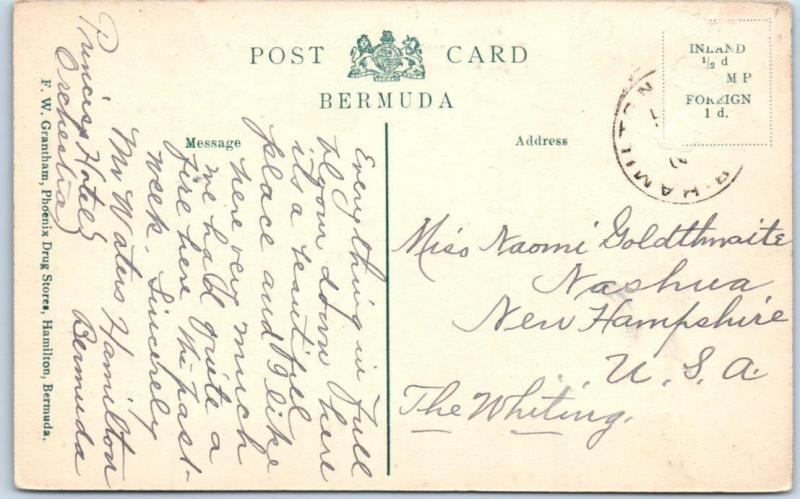 POST CARD
BERMUDA
Message
Address
INLAND
½ d
M P
FOREIGN
1 d.
HAMILTON
Everything in full
bloom down here
its a beautiful
place and I like
here very much
we had quite a
fire here this past-
week. Sincerely
Mr Waters Hamilton
Princess Hotel Bermuda
Orchestra
F. W. Grantham, Phoenix Drug Stores, Hamilton, Bermuda.
Miss Naomi Goldthwaite
Nashua
New Hampshire
U. S. A.
The Whiting.